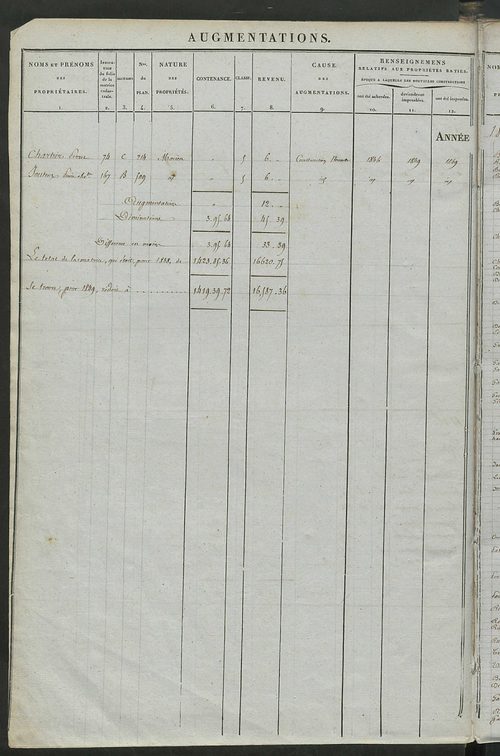 AUGMENTATIONS.
NOMS ET PRÉNOMS DES PROPRIÉTAIRES. 1.
folio de la matrice 2.
3.
Nos. du PLAN. 4.
NATURE DES PROPRIÉTÉS. 5.
CONTENANCE. 6.
CLASSE. 7.
REVENU. 8.
CAUSE DES AUGMENTATIONS. 9.
RENSEIGNEMENS RELATIFS AUX PROPRIÉTÉS BATIES.
ÉPOQUE A LAQUELLE LES NOUVELLES CONSTRUCTIONS
ont été achevées. 10.
deviendront imposables. 11.
ont été imposées. 12.
ANNÉE
74 C 214 Maison " 5 6 " Construction 1836 1839 1839
167 B 509 d° " 5 6 " d° d° d° d°
Augmentation " 12 "
Diminutions 3.95.64 45.39
Différence en moins 3.95.64 33.39
Le total de la matrice, qui était, pour 1838, de 1423.35.36 16620.75
Se trouve, pour 1839, réduit à 1419.39.72 16,587.36